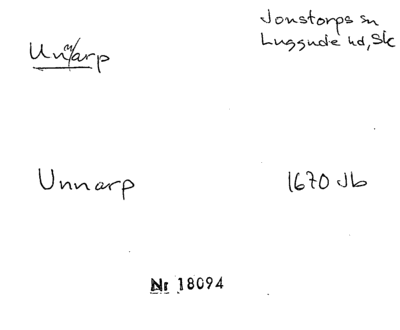 Jonstorps sn
Un/arp
Luggude hd, Sk
Unnarp
1670 Jb
Nr 18094